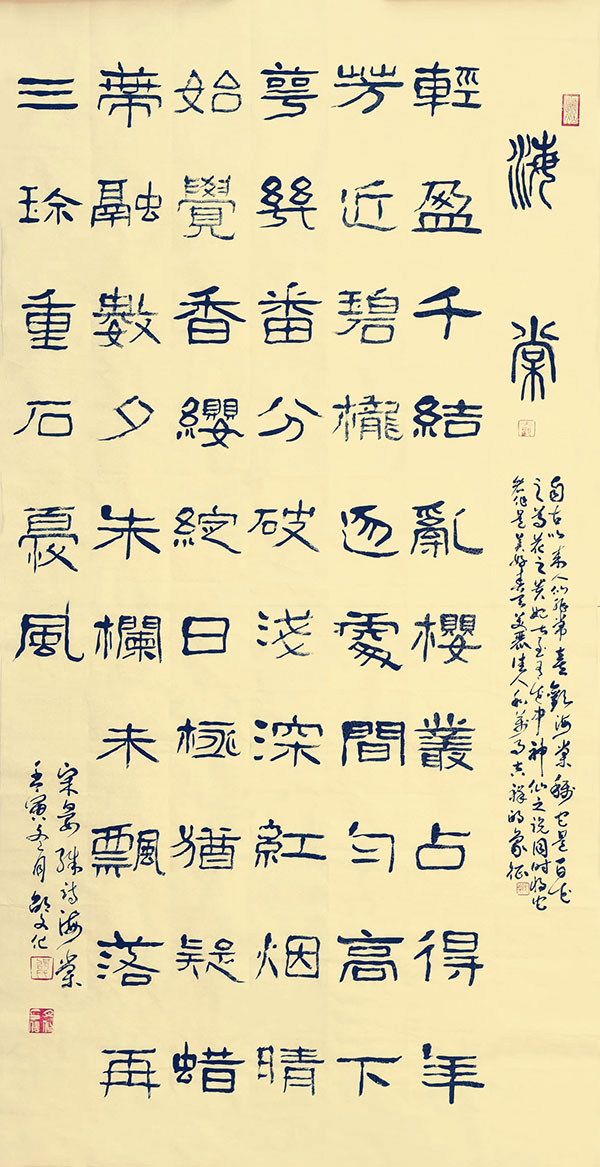 海棠
自古以来人们非常喜歡海棠称它是百花
之尊花之贵妃甚至有花中神仙之说同时将它
看作是美好春天美丽佳人和万事吉祥的象征
輕盈千結亂櫻叢占得年
芳近碧櫳逐處間匀高下
萼幾番分破淺深紅烟晴
始覺香纓綻日極猶疑蜡
蒂融數夕朱欄未飄落再
三珍重石憂風
宋晏殊诗海棠
壬寅冬月邵文化